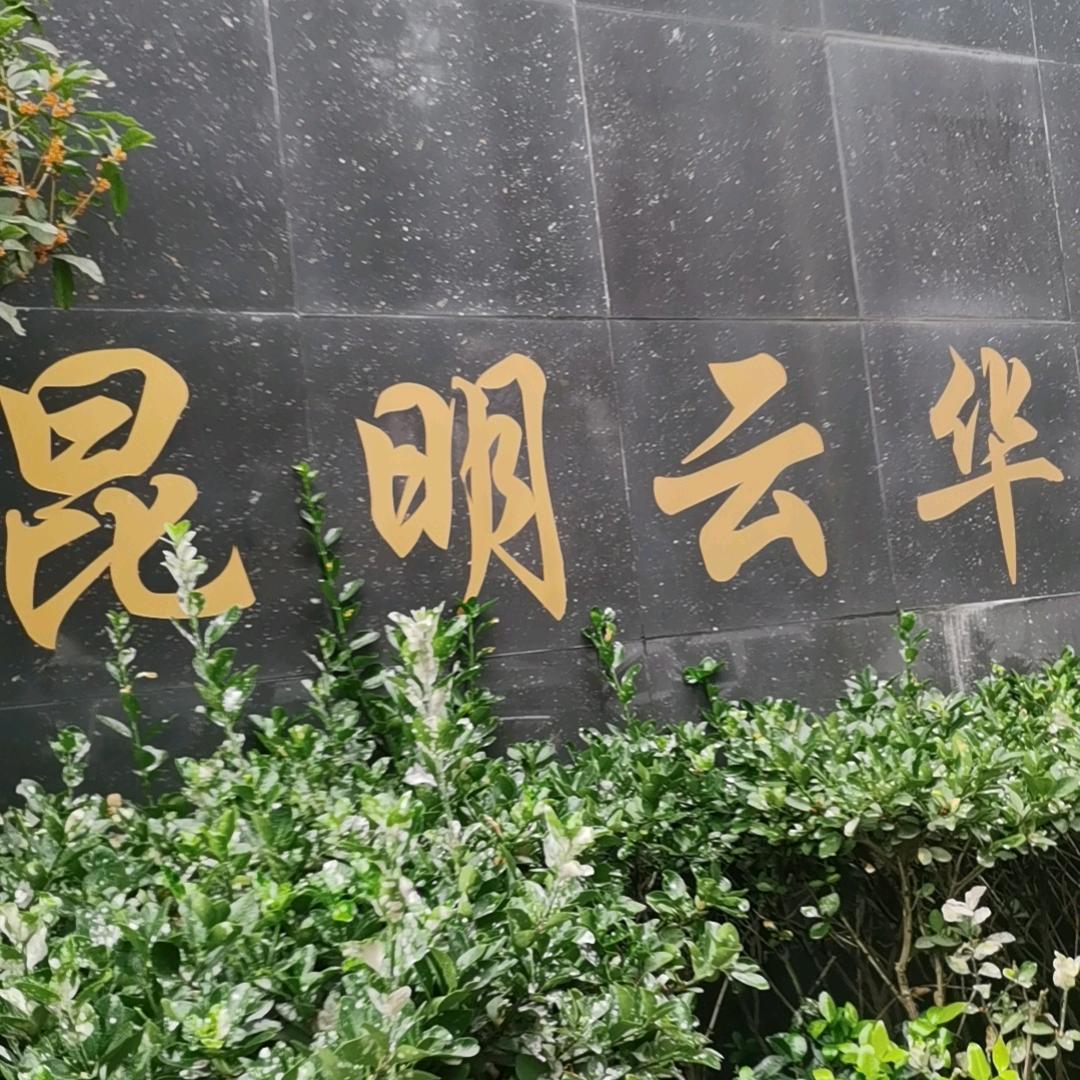 昆明云华